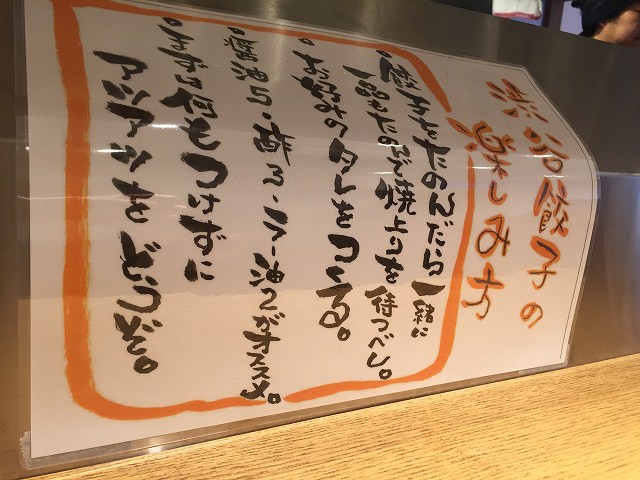 渋谷餃子の
楽しみ方
・餃子をたのんだら一緒に
一品もたのんで焼上りを待つべし。
・お好みのタレをつくる。
・醤油5・酢3・ラー油2がオススメ。
・まずは何もつけずに
アツアツをどうぞ。